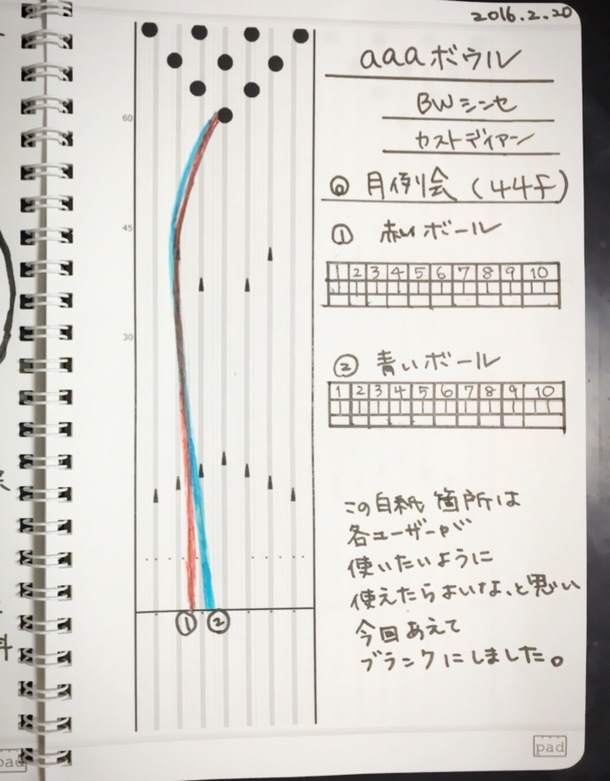 2016.2.20
aaaボウル
BWシンセ
カストディアン
◎ 月例会 (44F)
① 赤いボール
1 2 3 4 5 6 7 8 9 10
② 青いボール
1 2 3 4 5 6 7 8 9 10
この白紙箇所は
各ユーザーが
使いたいように
使えたらよいな、と思い
今回あえて
ブランクにしました。
60
45
30
① ②
pad